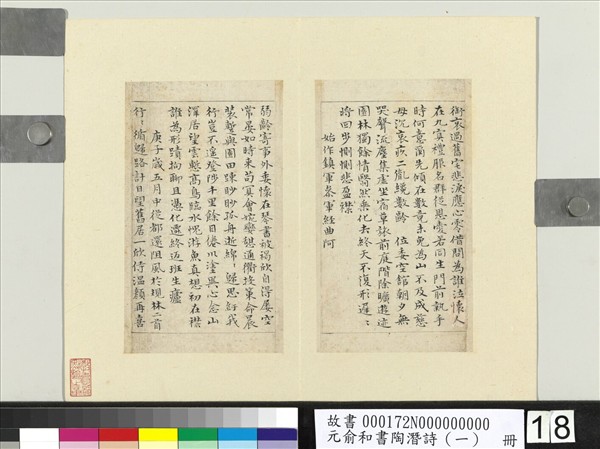 銜哀過舊宅悲淚應心零借問為誰泣懷人
在九冥禮服名群從恩愛若同生門前執手
時何意爾先傾在數竟未免為山不及成慈
母沉哀疚二胤纔數齡 位委空館朝夕無
哭聲流塵集虛坐宿草旅前庭階除曠遊迹
園林獨餘情翳然乘化去終天不復形遲〻
將回步惻惻悲盈襟
始作鎮軍參軍經曲阿
弱齡寄事外委懷在琴書被褐欣自得屢空
常晏如時來苟冥會婉孌憩通衢投策命晨
裝暫與園田疎眇眇孤舟逝綿〻歸思紆我
行豈不遙登陟千里餘目倦川塗異心念山
澤居望雲慚高鳥臨水愧游魚真想初在襟
誰為形蹟拘聊且憑化遷終返班生廬
庚子歲五月中從都還阻風於規林二首
行〻循歸路計日望舊居一欣侍溫顏再喜
故書 000172N000000000
元俞和書陶潛詩(一) 冊
18